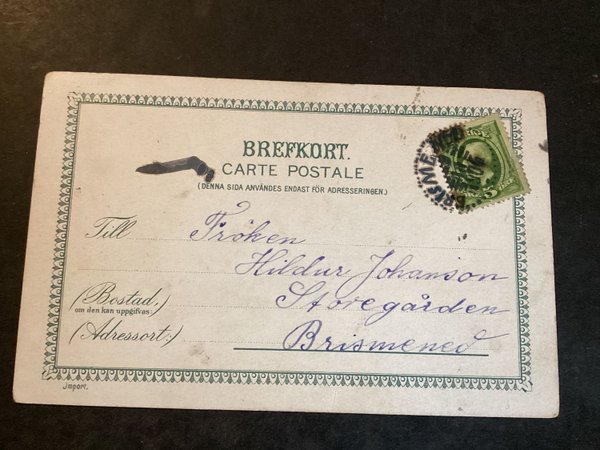 BREFKORT.
CARTE POSTALE
(DENNA SIDA ANVÄNDES ENDAST FÖR ADRESSERINGEN.)
Till Fröken
Hildur Johanson
(Bostad, Storegården
om den kan uppgifvas:)
(Adressort:) Brismened
Import.